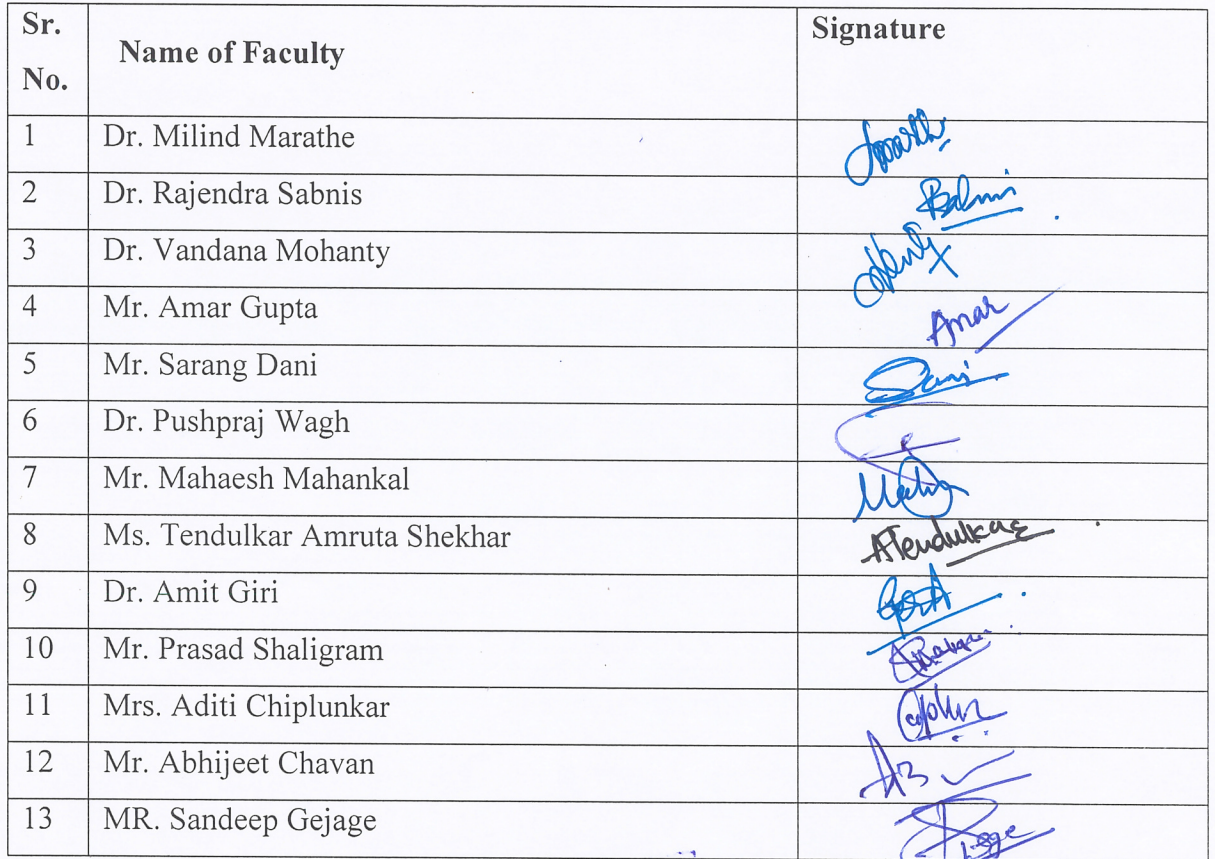 Sr. No. Name of Faculty Signature
1 Dr. Milind Marathe
2 Dr. Rajendra Sabnis
3 Dr. Vandana Mohanty
4 Mr. Amar Gupta Amar
5 Mr. Sarang Dani
6 Dr. Pushpraj Wagh
7 Mr. Mahaesh Mahankal
8 Ms. Tendulkar Amruta Shekhar ATendulkar
9 Dr. Amit Giri
10 Mr. Prasad Shaligram
11 Mrs. Aditi Chiplunkar
12 Mr. Abhijeet Chavan
13 MR. Sandeep Gejage